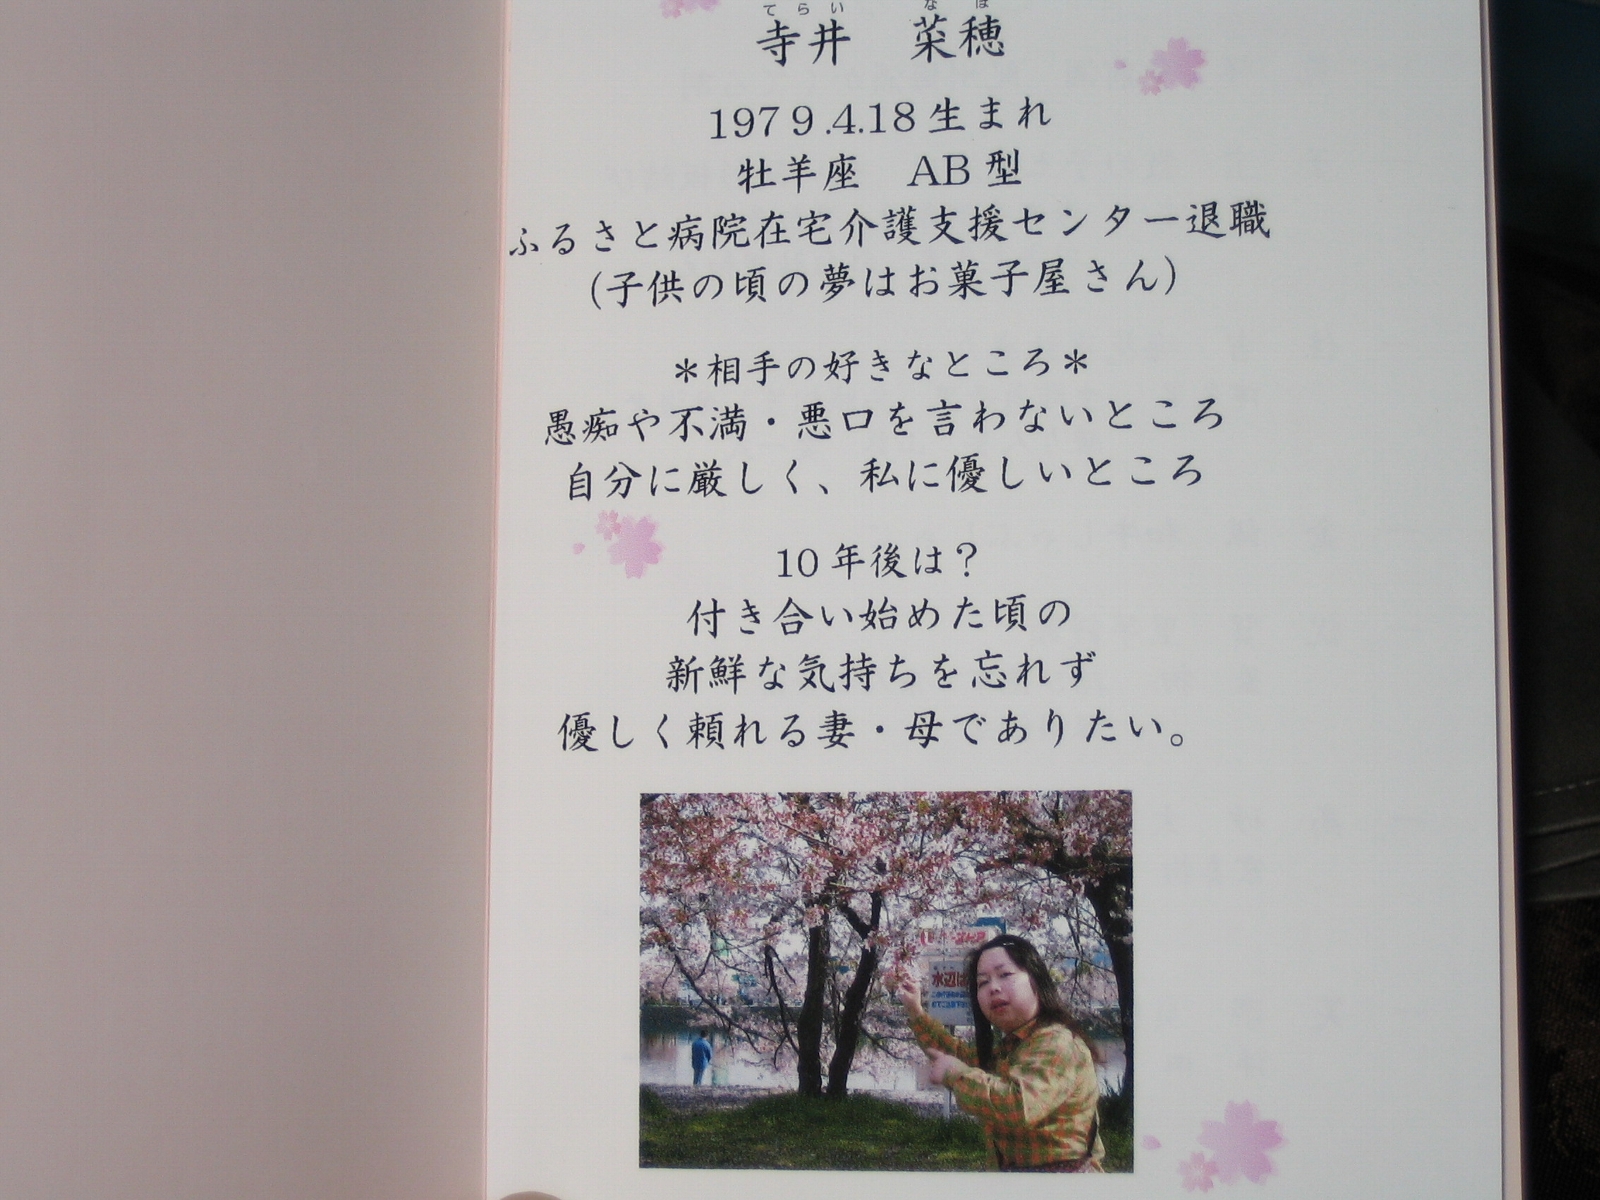 てらい　なほ
寺井　菜穂
1979.4.18生まれ
牡羊座　AB型
ふるさと病院在宅介護支援センター退職
(子供の頃の夢はお菓子屋さん)
＊相手の好きなところ＊
愚痴や不満・悪口を言わないところ
自分に厳しく、私に優しいところ
10年後は？
付き合い始めた頃の
新鮮な気持ちを忘れず
優しく頼れる妻・母でありたい。
水辺は